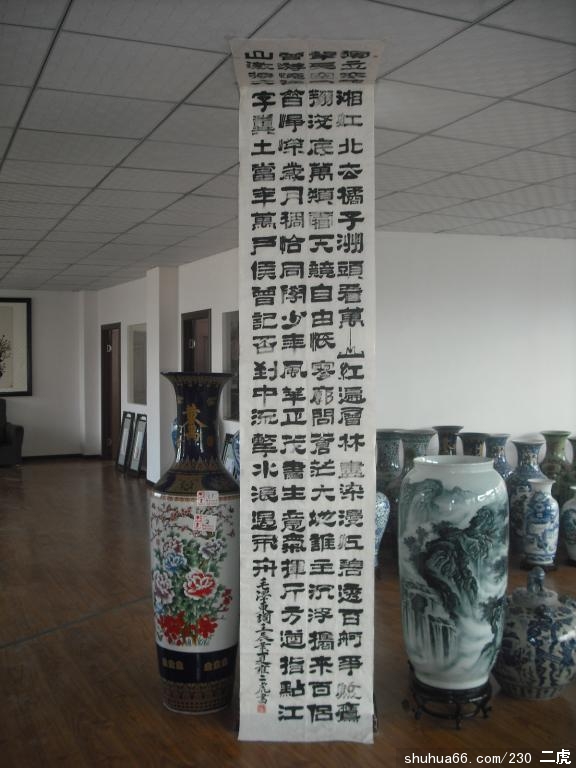 獨立寒秋湘江北去橘子洲頭看萬山紅遍層林盡染漫江碧透百舸爭流鷹
擊長空魚翔淺底萬類霜天競自由悵寥廓問蒼茫大地誰主沉浮攜來百侶
曾游憶往昔崢嶸歲月稠恰同學少年風華正茂書生意氣揮斥方遒指點江
山激揚文字糞土當年萬戶侯曾記否到中流擊水浪遏飛舟
毛澤東詞 二虎書
shuhua66.com/230 二虎